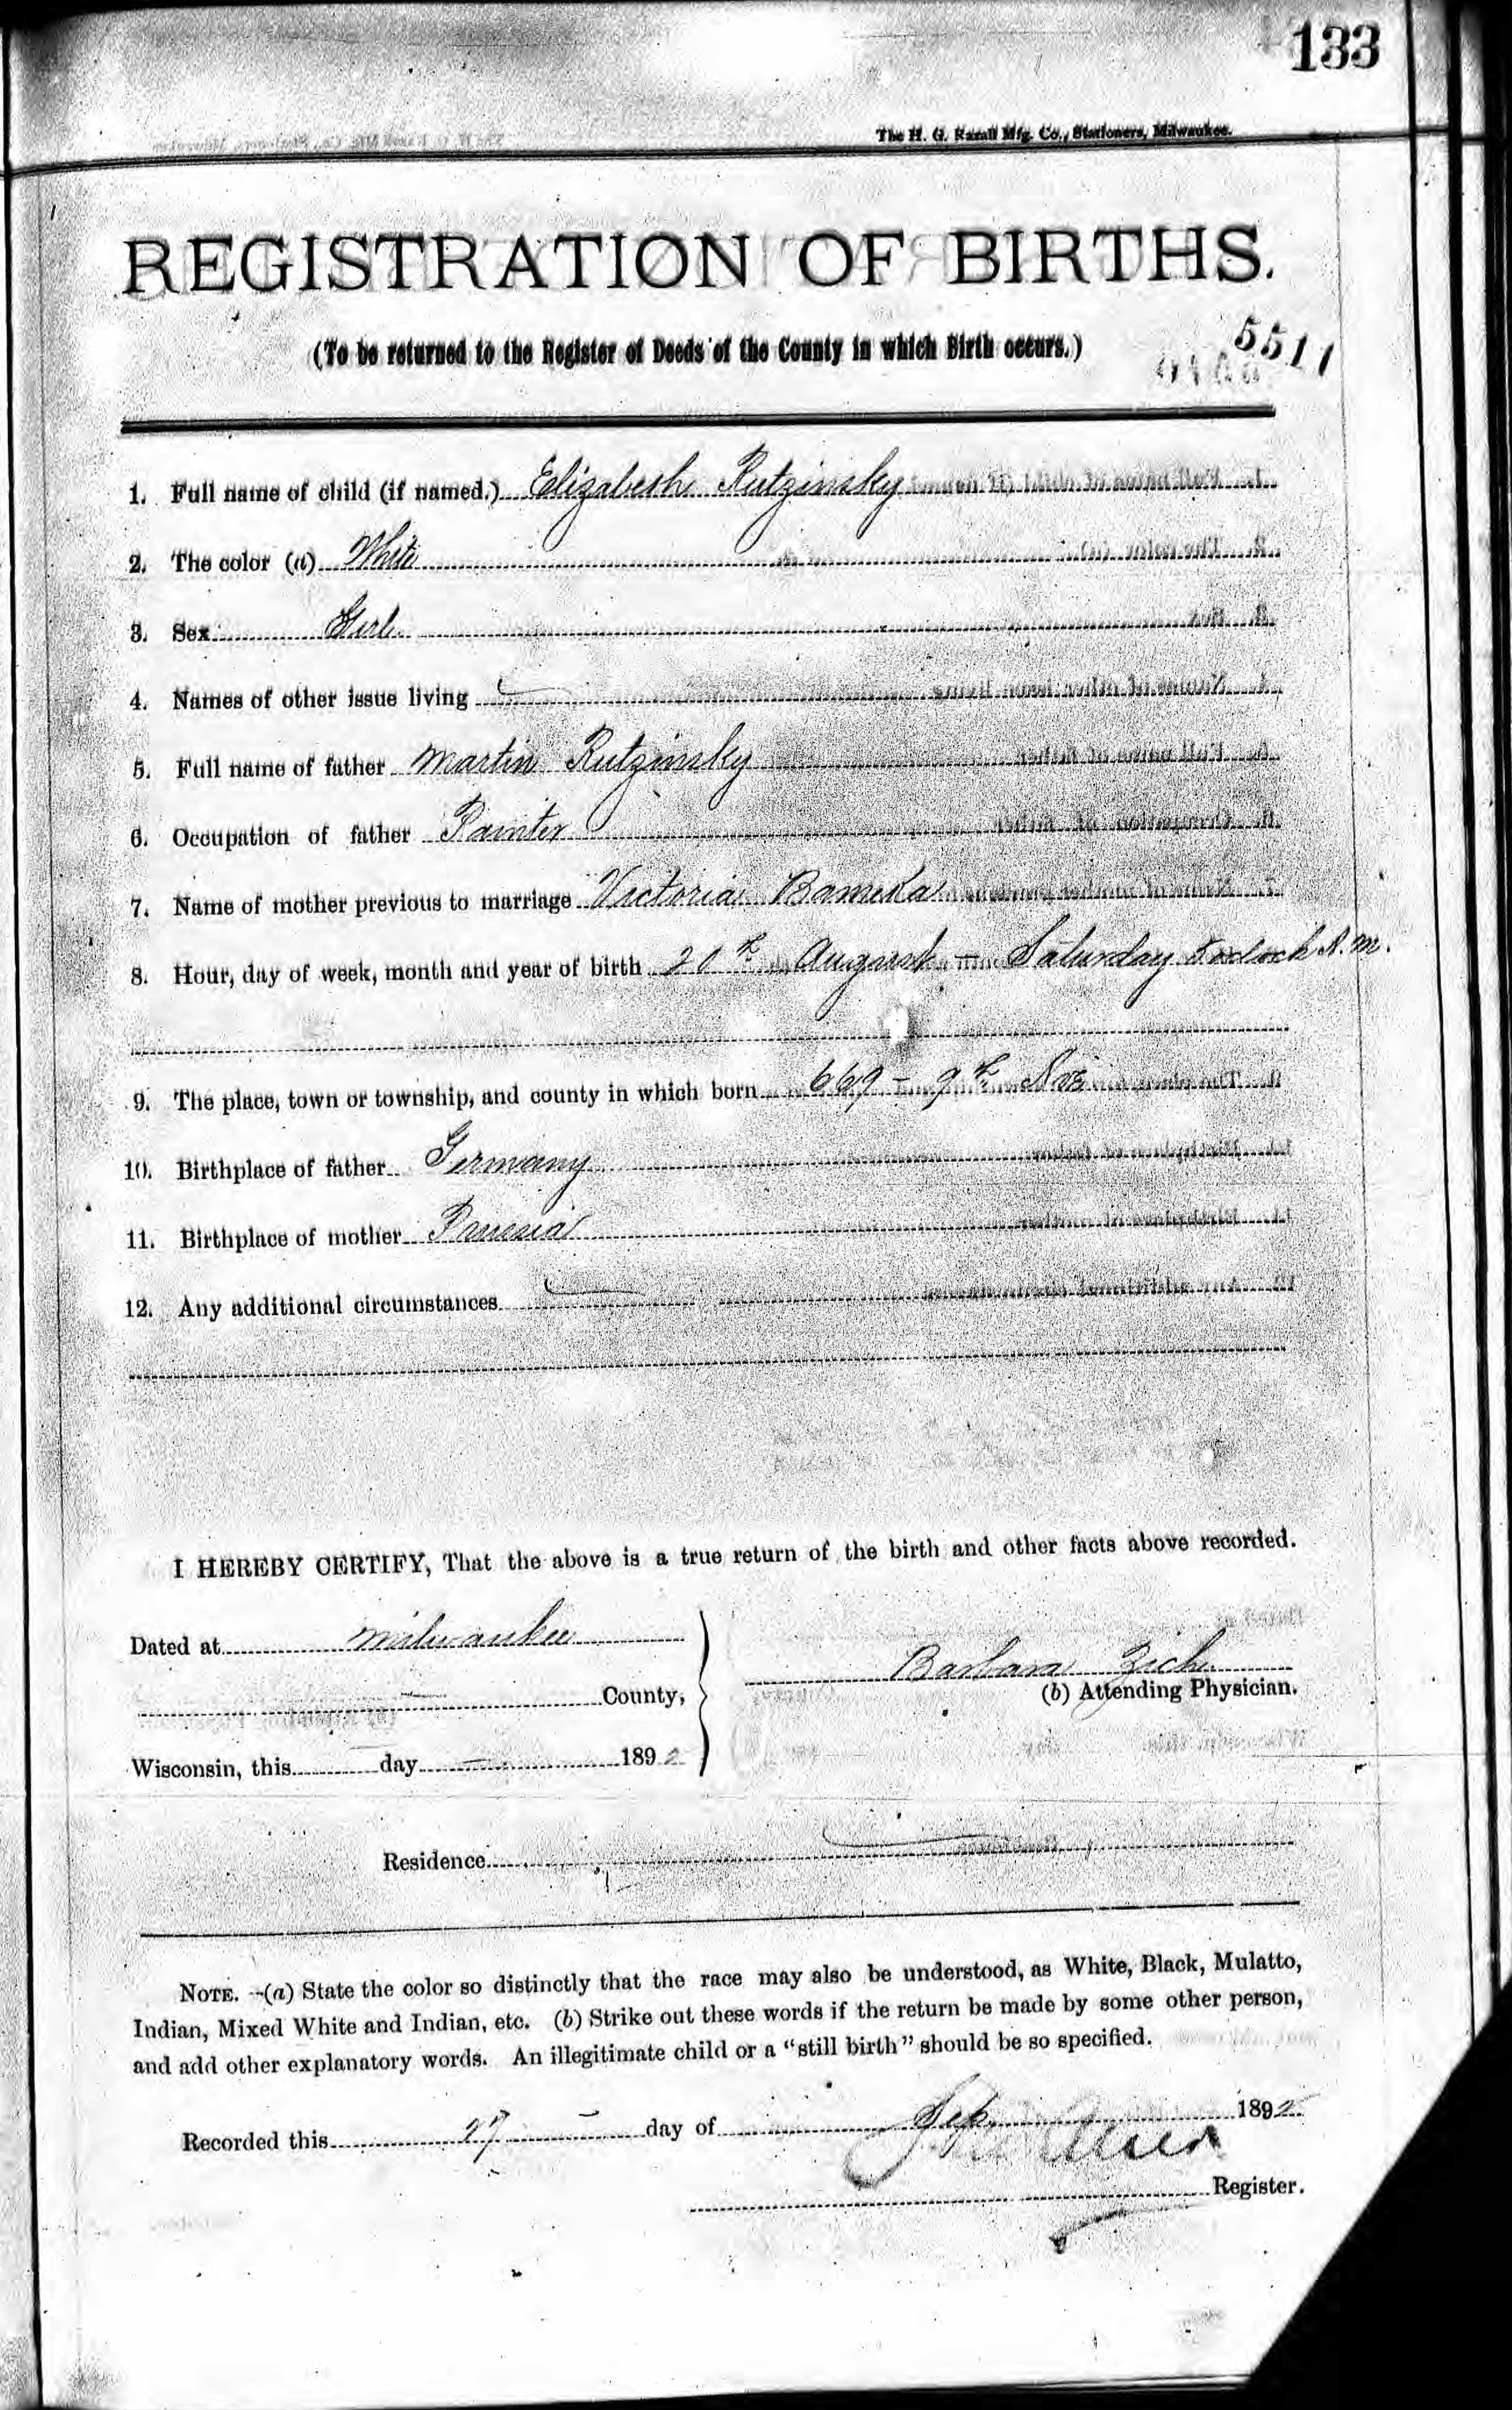 133
The H. G. Razall Mfg. Co., Stationers, Milwaukee.
REGISTRATION OF BIRTHS.
(To be returned to the Register of Deeds of the County in which Birth occurs.)
5511
1. Full name of child (if named.) Elizabeth Rutzinsky
2. The color (a) White
3. Sex Girl
4. Names of other issue living
5. Full name of father Martin Rutzinsky
6. Occupation of father Painter
7. Name of mother previous to marriage Victoria
8. Hour, day of week, month and year of birth 20th August - Saturday A.M.
9. The place, town or township, and county in which born 669 - 9th Ave
10. Birthplace of father Germany
11. Birthplace of mother Prussia
12. Any additional circumstances
I HEREBY CERTIFY, That the above is a true return of the birth and other facts above recorded.
Dated at Milwaukee
Barbara
County,
(b) Attending Physician.
Wisconsin, this day 1892
Residence
NOTE. -(a) State the color so distinctly that the race may also be understood, as White, Black, Mulatto,
Indian, Mixed White and Indian, etc. (b) Strike out these words if the return be made by some other person,
and add other explanatory words. An illegitimate child or a "still birth" should be so specified.
Recorded this 27 day of Sep. 1892
Register.